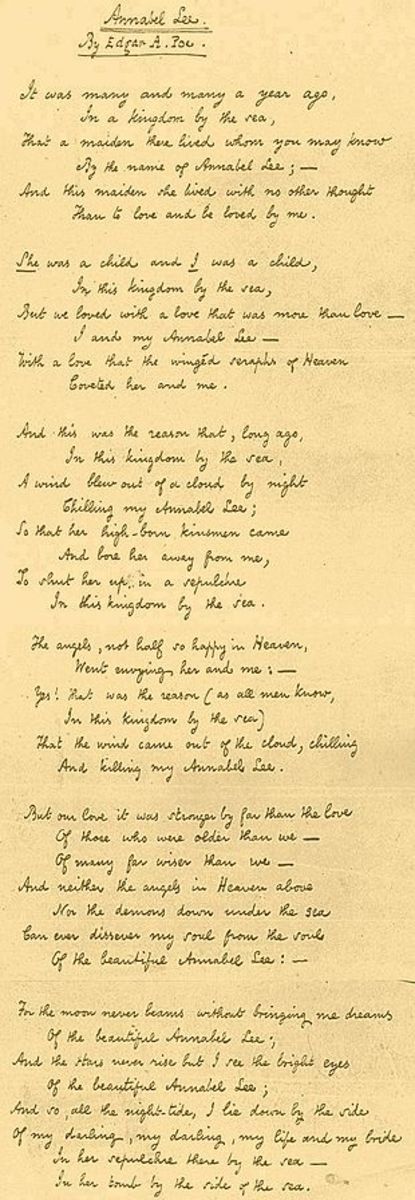 Annabel Lee.
By Edgar A. Poe.
It was many and many a year ago,
In a kingdom by the sea,
That a maiden there lived whom you may know
By the name of Annabel Lee; —
And this maiden she lived with no other thought
Than to love and be loved by me.
She was a child and I was a child,
In this kingdom by the sea,
But we loved with a love that was more than love —
I and my Annabel Lee —
With a love that the wingéd seraphs of Heaven
Coveted her and me.
And this was the reason that, long ago,
In this kingdom by the sea,
A wind blew out of a cloud by night
Chilling my Annabel Lee;
So that her high-born kinsmen came
And bore her away from me,
To shut her up in a sepulchre
In this kingdom by the sea.
The angels, not half so happy in Heaven,
Went envying her and me: —
Yes! that was the reason (as all men know,
In this kingdom by the sea)
That the wind came out of the cloud, chilling
And killing my Annabel Lee.
But our love it was stronger by far than the love
Of those who were older than we —
Of many far wiser than we —
And neither the angels in Heaven above
Nor the demons down under the sea
Can ever dissever my soul from the soul
Of the beautiful Annabel Lee: —
For the moon never beams without bringing me dreams
Of the beautiful Annabel Lee;
And the stars never rise but I see the bright eyes
Of the beautiful Annabel Lee;
And so, all the night-tide, I lie down by the side
Of my darling, my darling, my life and my bride
In her sepulchre there by the sea —
In her tomb by the side of the sea.